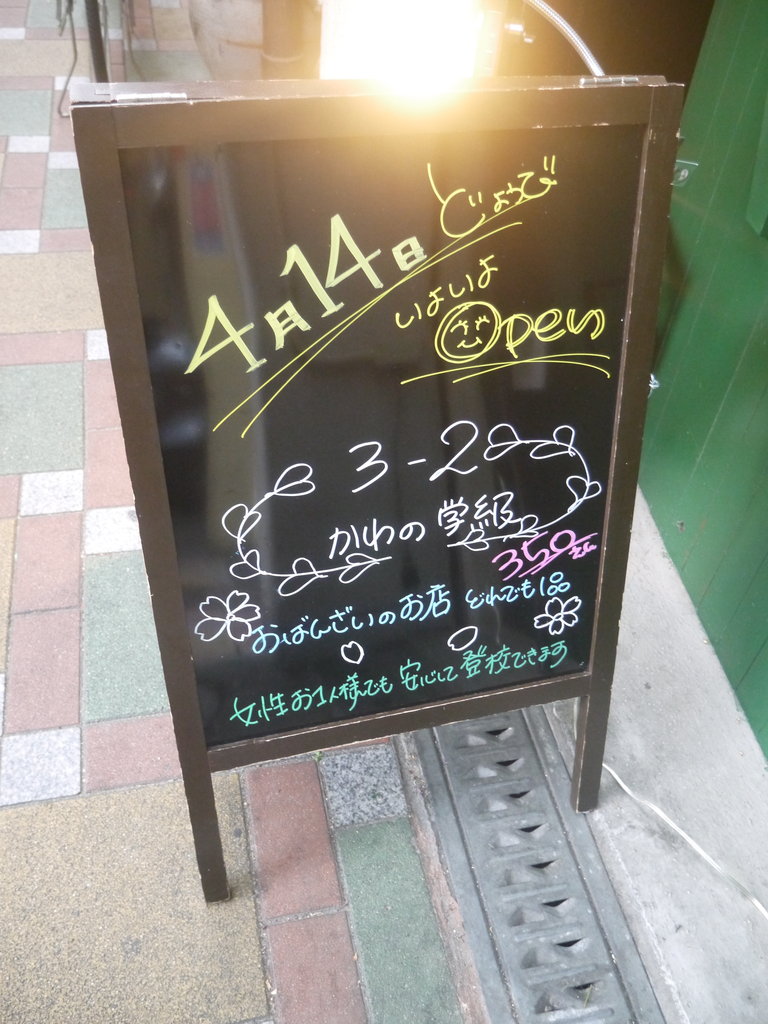 4月14日 どようび
いよいよ
Open
3-2
かわの 学級
350えん
おばんざいのお店 どれでも1品
女性お1人様でも 安心して登校できます